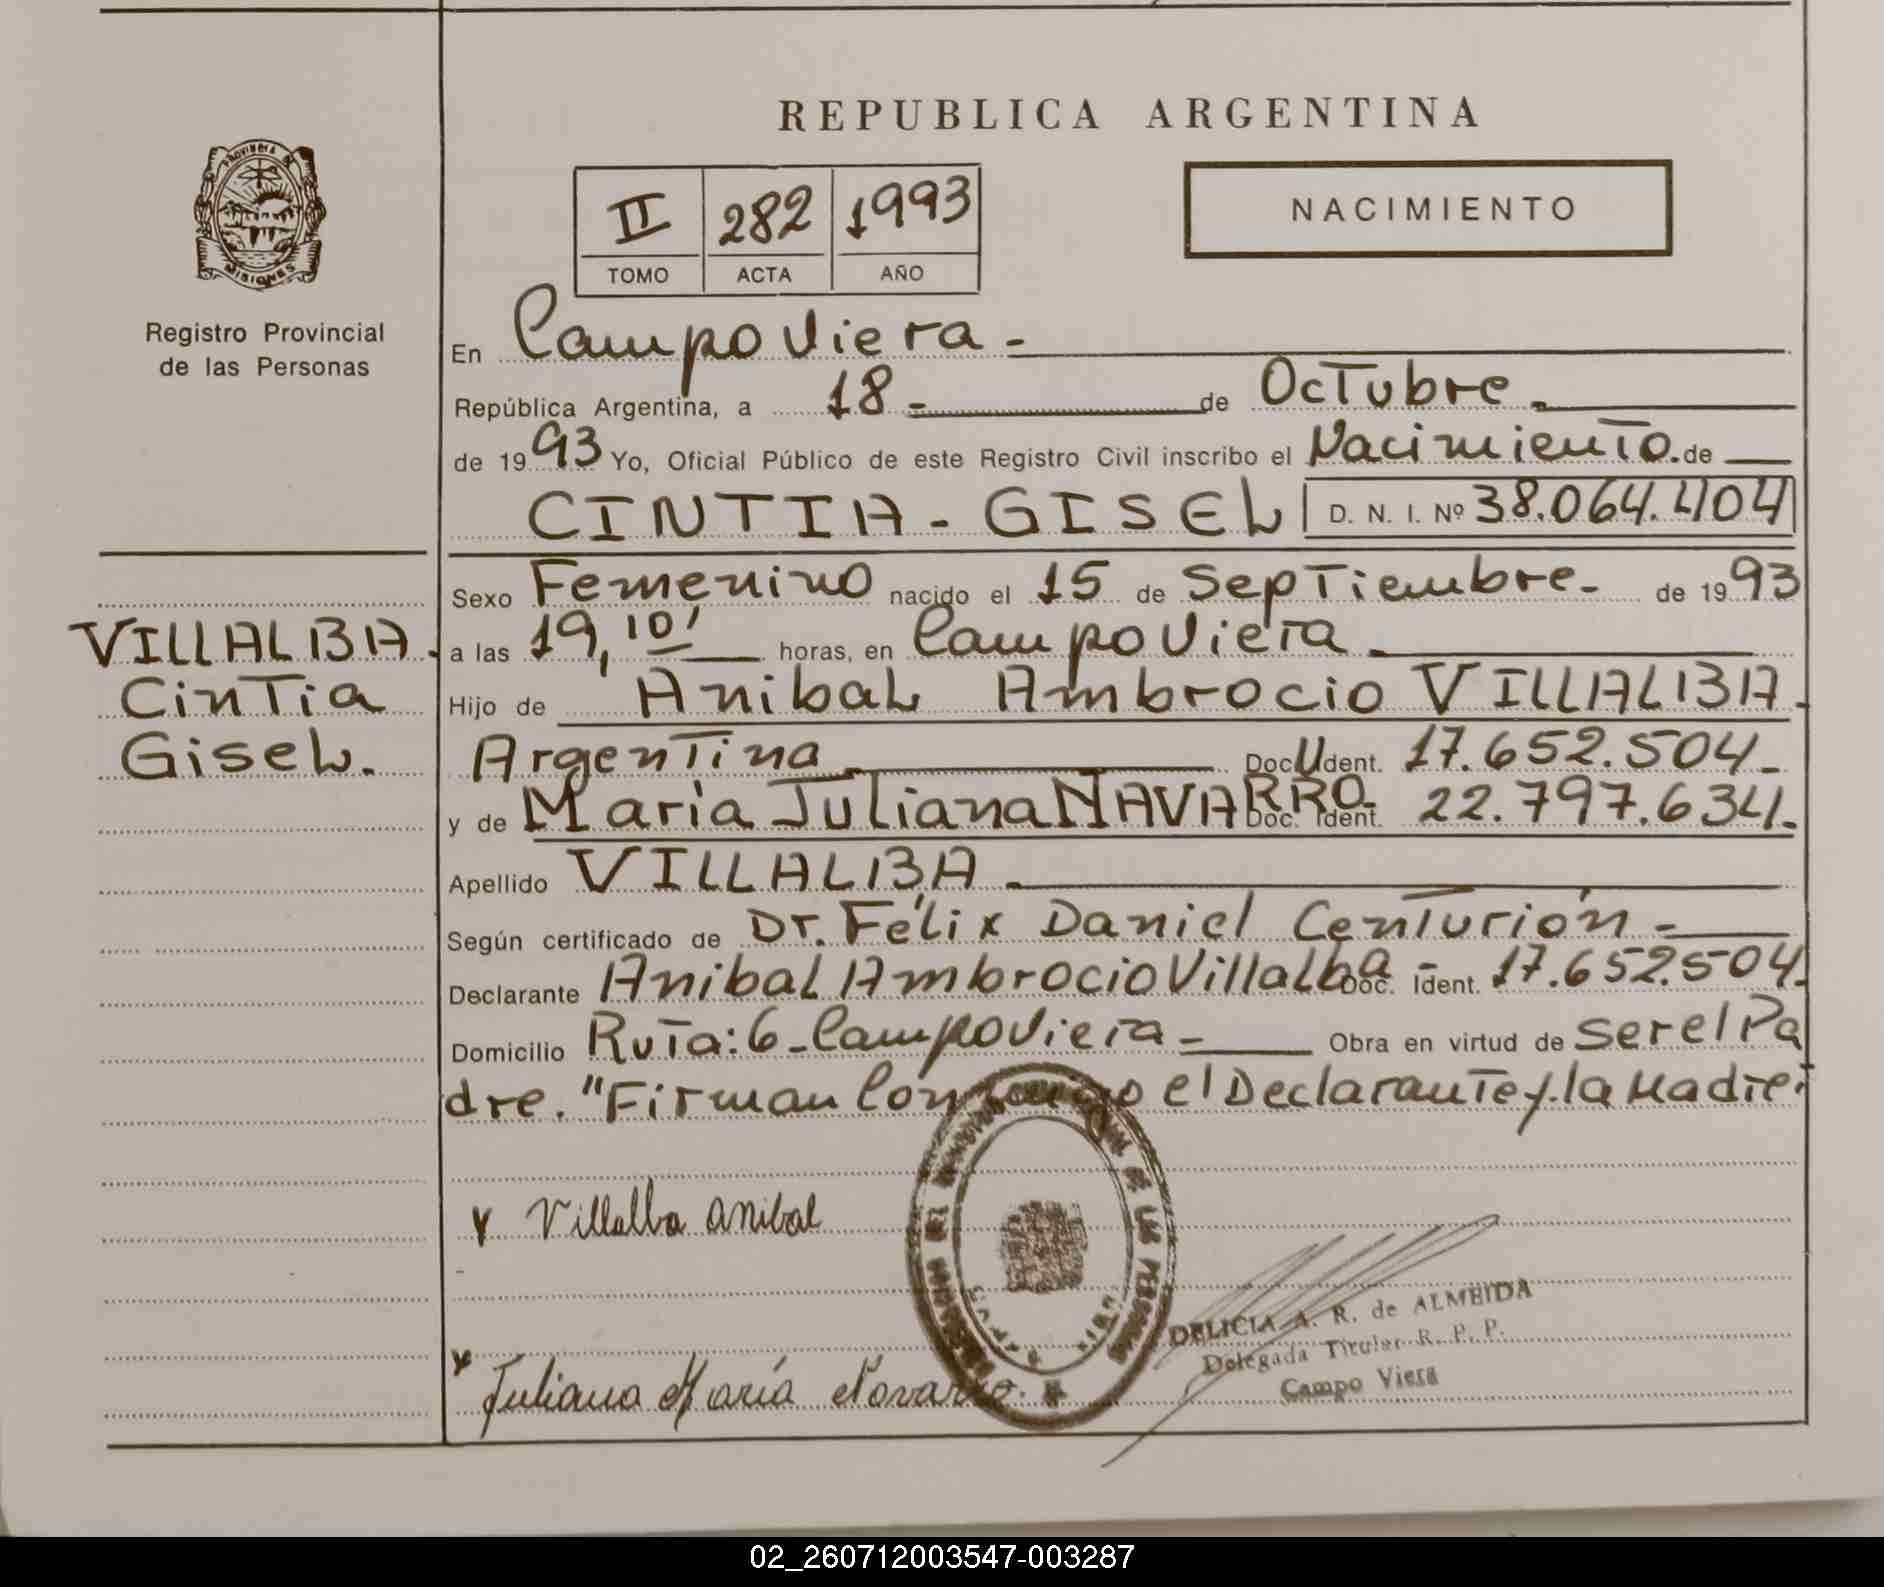 REPUBLICA ARGENTINA
PROVINCIA DE
MISIONES
Registro Provincial
de las Personas
II 282 1993
TOMO ACTA AÑO
NACIMIENTO
En Campo Viera -
República Argentina, a 18 - de Octubre.
de 1993 Yo, Oficial Público de este Registro Civil inscribo el Nacimiento. de
CINTIA - GISEL D. N. I. Nº 38.064.404
Sexo Femenino nacido el 15 de Septiembre - de 1993
VILLALBA.
Cintia
Gisel.
a las 19,10' horas, en Campo Viera.
Hijo de Anibal Ambrocio VILLALBA.
Argentina Doc. Ident. 17.652.504-
y de Maria Juliana NAVARRO. Doc. Ident. 22.797.634.
Apellido VILLALBA.
Según certificado de Dr. Félix Daniel Centurión -
Declarante Anibal Ambrocio Villalba Doc. Ident. 17.652.504.
Domicilio Ruta: 6 - Campo Viera - Obra en virtud de ser el Pa
dre. "Firman Conmigo el Declarante y la Madre.
Villalba Anibal
DE LAS PERSONAS
DELICIA A. R. de ALMEIDA
Delegada Titular R. P. P.
Campo Viera
Juliana María Navarro.
02_260712003547-003287